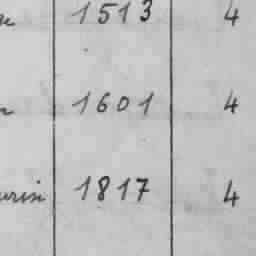 1513 4
1601 4
1817 4